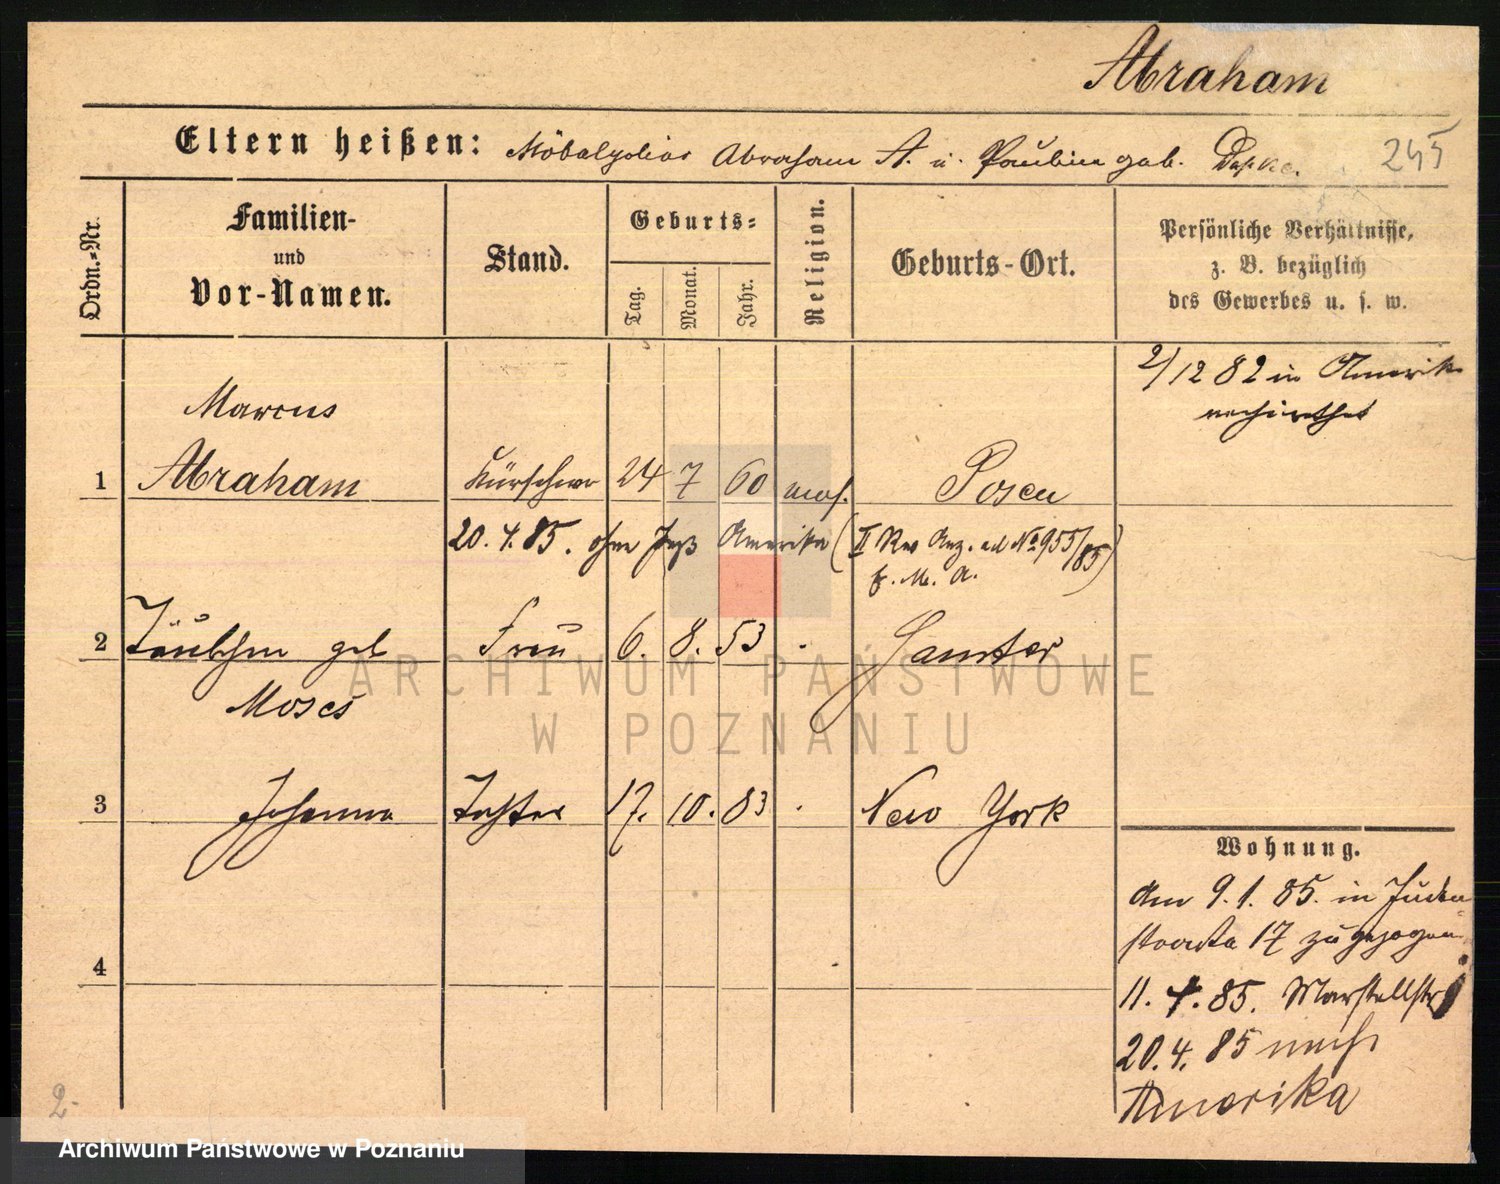 Abraham
Eltern heißen: Abraham A. u. Pauline geb.
245
Ordn.=Nr.
Familien-
und
Vor-Namen.
Stand.
Geburts=
Tag.
Monat.
Jahr.
Religion.
Geburts-Ort.
Persönliche Verhältnisse,
z. B. bezüglich
des Gewerbes u. s. w.
2/12 82 in Amerika
verheirathet
Marcus
1 Abraham Kürschner 24 7 60 mos. Posen
20. 4. 85. ohne Paß Amerika (II Rev Anz. ad No 955/85)
2 Täubchen geb Frau 6. 8. 53 . Samter
Moses
3 Johanna Tochter 17. 10. 83 . New York
Wohnung.
Am 9. 1. 85. in Juden=
straße 17 zugezogen.
4
11. 4. 85. Marstallstr
20. 4. 85 nach
Amerika
2-
ARCHIWUM PAŃSTWOWE
W POZNANIU
Archiwum Państwowe w Poznaniu